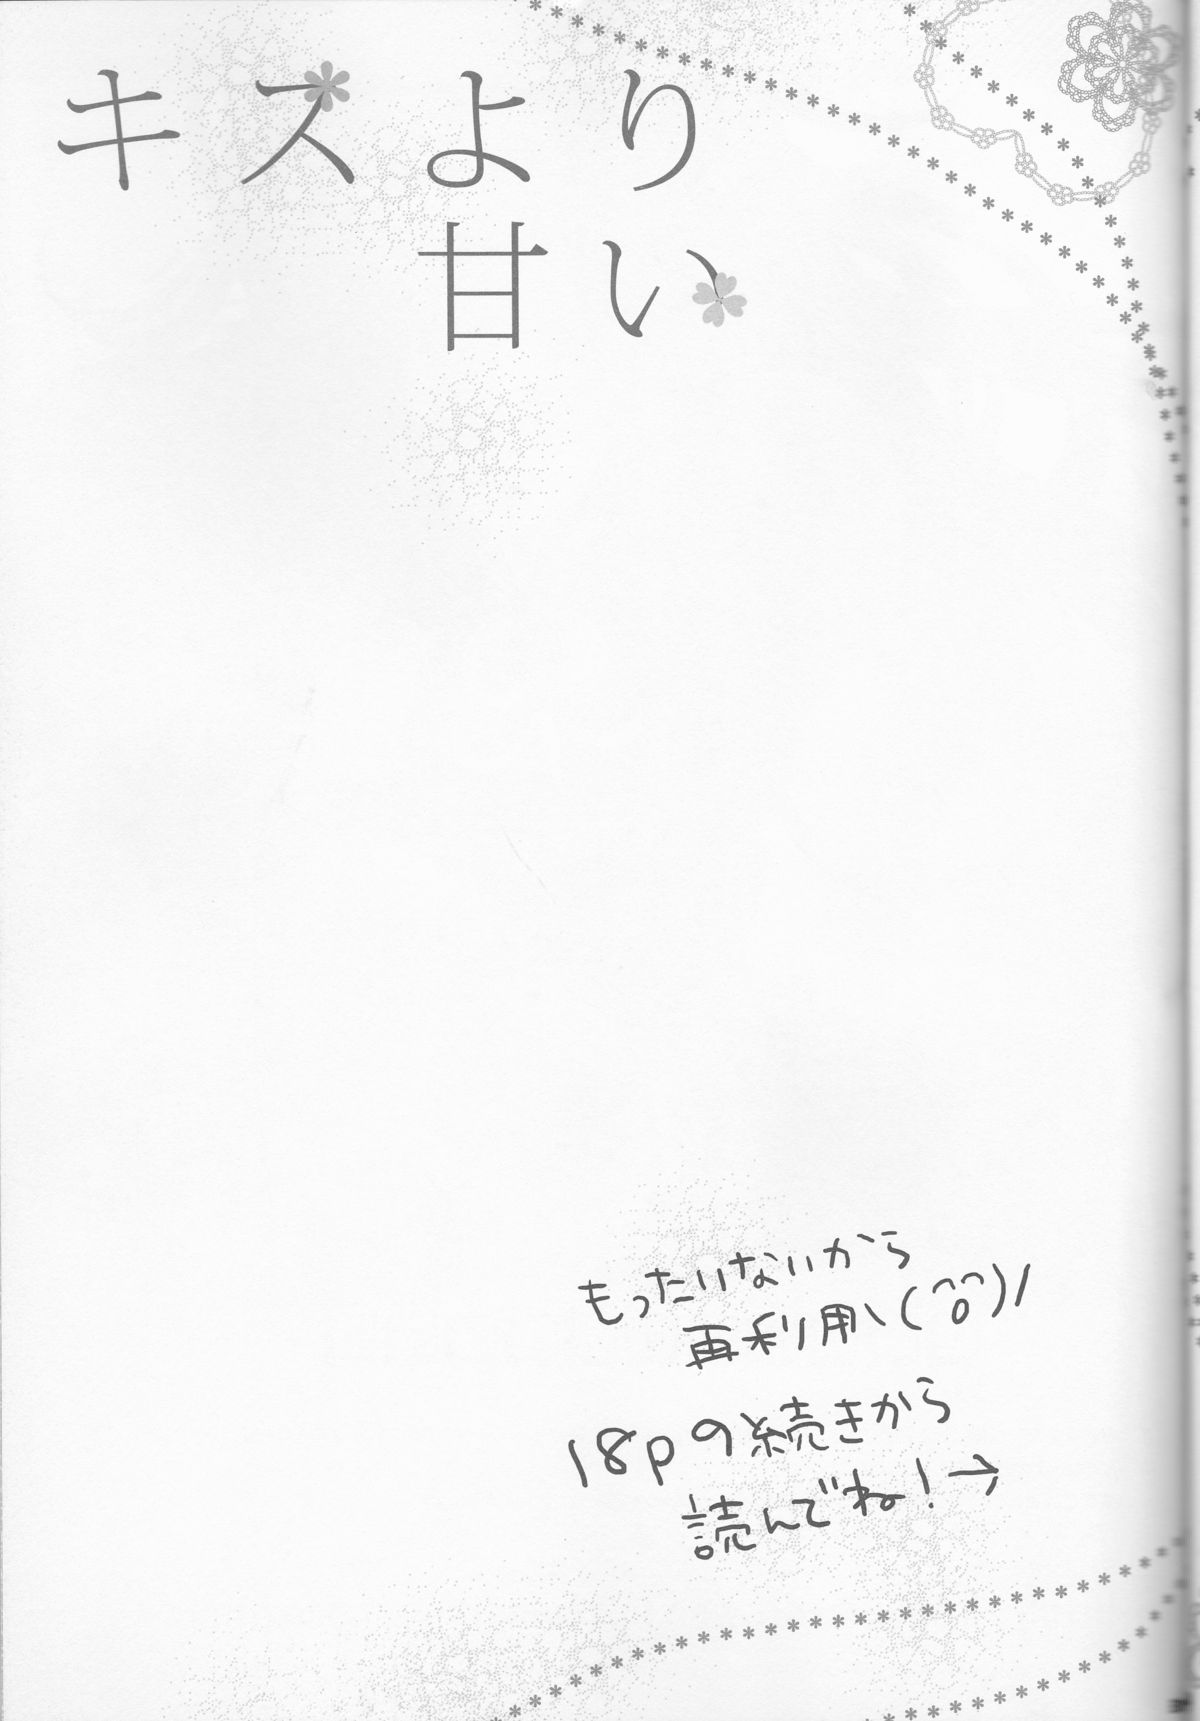 キスより
甘い
もったいないから
再利用\(^o^)/
18pの続きから
読んでね!→